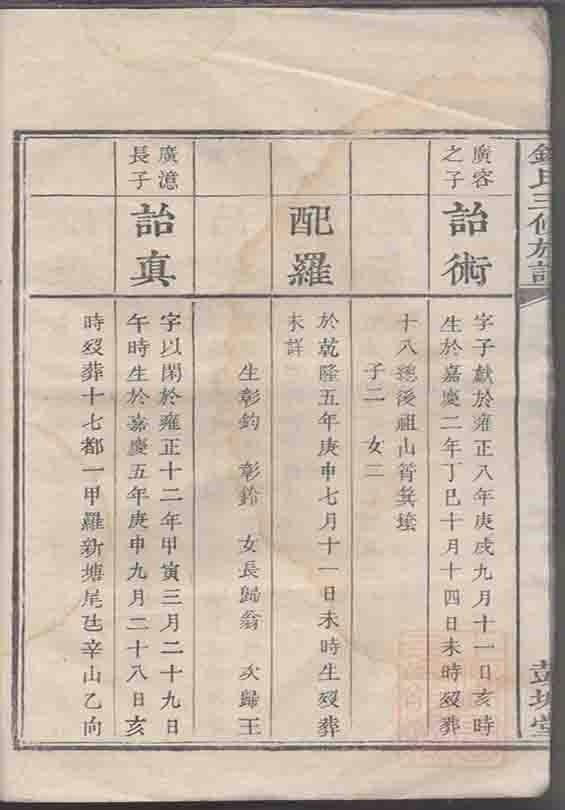 錢氏三修族譜
彭城堂
廣容
之子
詒術
字子獻於雍正八年庚戌九月十一日亥時
生於嘉慶二年丁巳十月十四日未時歿葬
十八總後祖山筲箕
子二　女二
配羅
於乾隆五年庚申七月十一日未時生歿葬
未詳
生彰鈞　彰鈴　女長歸翁　次歸王
廣澺
長子
詒真
字以閑於雍正十二年甲寅三月二十九日
午時生於嘉慶五年庚申九月二十八日亥
時歿葬十七都一甲羅新塘尾辛山乙向